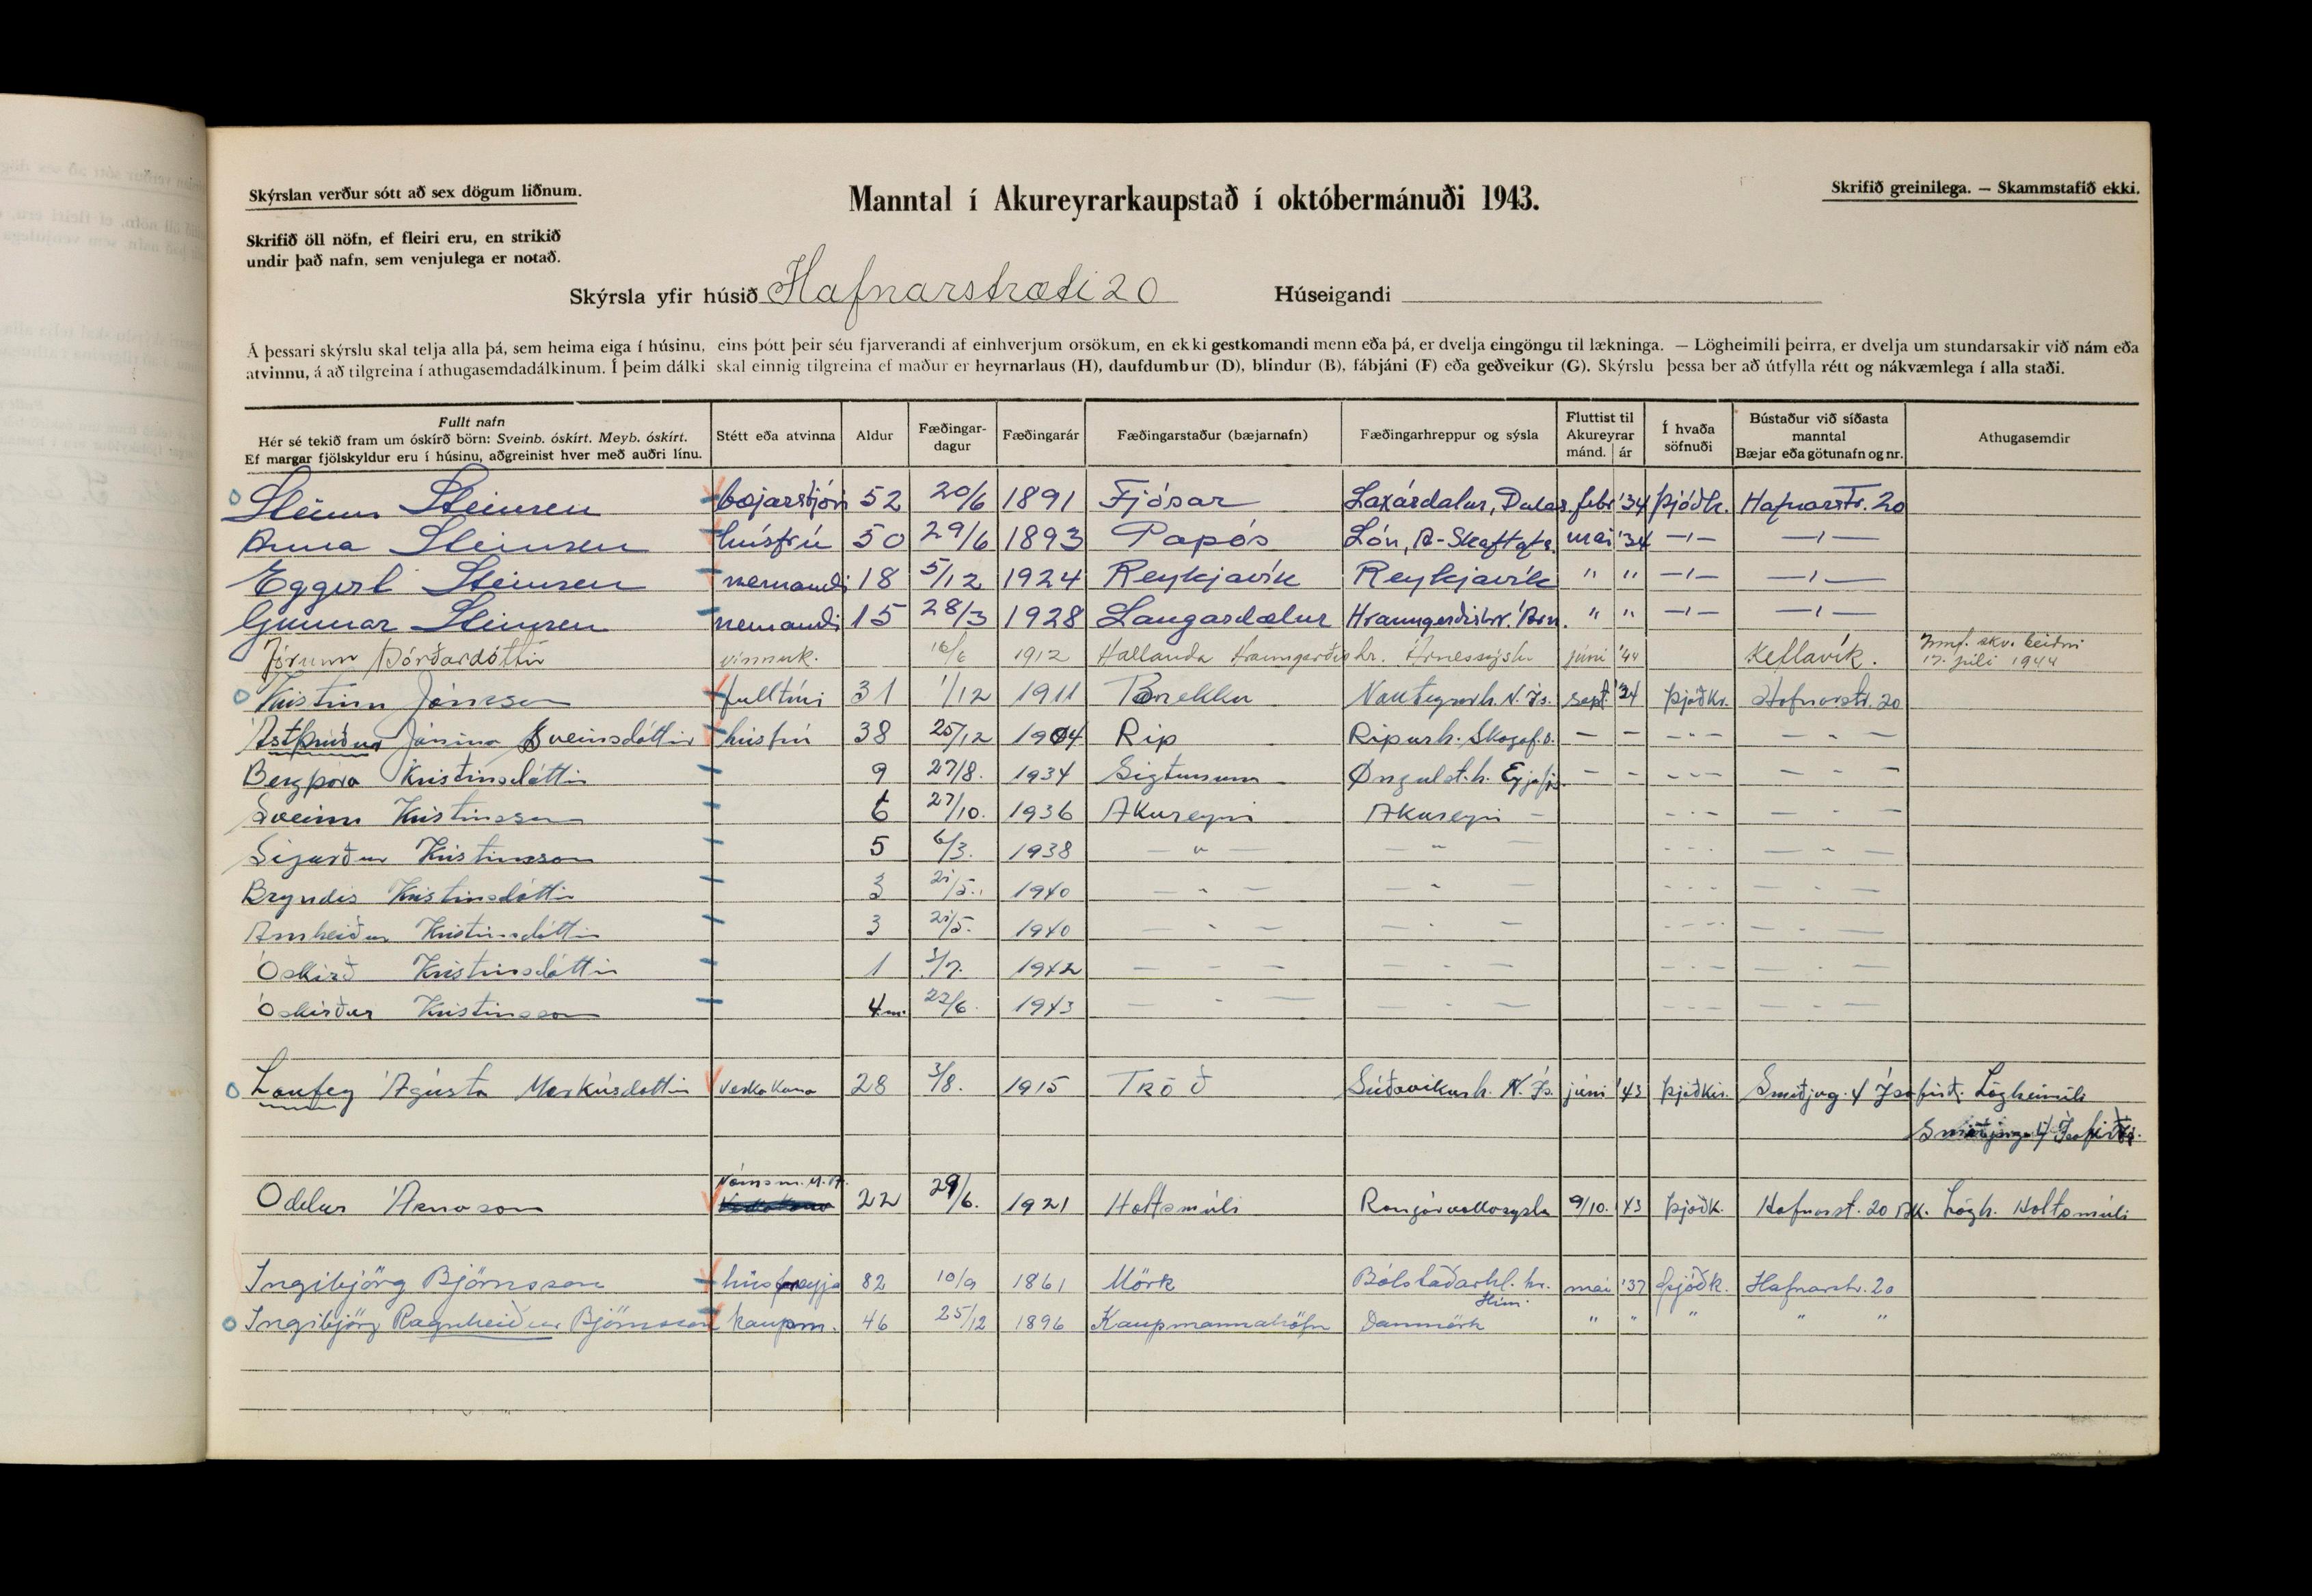 Skýrslan verður sótt að sex dögum liðnum.
Manntal í Akureyrarkaupstað í októbermánuði 1943.
Skrifið greinilega. — Skammstafið ekki.
Skrifið öll nöfn, ef fleiri eru, en strikið
undir það nafn, sem venjulega er notað.
Skýrsla yfir húsið Hafnarstræti 20 Húseigandi
Á þessari skýrslu skal telja alla þá, sem heima eiga í húsinu, eins þótt þeir séu fjarverandi af einhverjum orsökum, en ekki gestkomandi menn eða þá, er dvelja eingöngu til lækninga. — Lögheimili þeirra, er dvelja um stundarsakir við nám eða
atvinnu, á að tilgreina í athugasemdadálkinum. Í þeim dálki skal einnig tilgreina ef maður er heyrnarlaus (H), daufdumbur (D), blindur (B), fábjáni (F) eða geðveikur (G). Skýrslu þessa ber að útfylla rétt og nákvæmlega í alla staði.
Fullt nafn
Hér sé tekið fram um óskírð börn: Sveinb. óskírt. Meyb. óskírt.
Ef margar fjölskyldur eru í húsinu, aðgreinist hver með auðri línu.
Stétt eða atvinna
Aldur
Fæðingar-
dagur
Fæðingarár
Fæðingarstaður (bæjarnafn)
Fæðingarhreppur og sýsla
Fluttist til
Akureyrar
mánd. ár
Í hvaða
söfnuði
Bústaður við síðasta
manntal
Bæjar eða götunafn og nr.
Athugasemdir
Steinn Steinsen bæjarstjóri 52 20/6 1891 Fjósar Laxárdalur, Dalas. febr '34 Þjóðk. Hafnarstr. 20
Anna Steinsen húsfrú 50 29/6 1893 Papós Lón, A-Skaftafs. maí '34 —ı— —ı—
Eggert Steinsen nemandi 18 5/12 1924 Reykjavík Reykjavík " " —ı— —ı—
Gunnar Steinsen nemandi 15 28/3 1928 Laugardælur Hraungerðishr. Árn. " " —ı— —ı—
Jórunn Þórðardóttir vinnuk. 16/6 1912 Hallanda Hraungerðishr. Árnessýslu júní '44 Keflavík. Innf. skv. beiðni
17. júlí 1944
Kristinn Jónsson fulltrúi 31 1/12 1911 Brekku Nauteyrarh. N. Ís. sept. '34 Þjóðkr. Hafnarstr. 20
Ástþrúður Jónína Sveinsdóttir húsfrú 38 25/12 1904 Ríp Rípurh. Skagaf.s. — — - - - — - —
Bergþóra Kristinsdóttir 9 27/8. 1934 Sigtúnum Öngulst.h. Eyjafj. - - - - - — - —
Sveinn Kristinsson 6 27/10. 1936 Akureyri Akureyri - - - - — - —
Sigurður Kristinsson 5 6/3. 1938 — " — — " — - - - — - —
Bryndís Kristinsdóttir 3 21/5. 1940 — - — — " — - - - — - —
Arnheiður Kristinsdóttir 3 21/5. 1940 — - — — - — - - - — - —
Óskírð Kristinsdóttir 1 1942 — - — — - — - - - — - —
Óskírður Kristinsson 4 m. 22/6. 1943 — - — — - — - - - — - —
Laufey Ágústa Markúsdóttir Verkakona 28 3/8. 1915 Tröð Súðavíkurh. N. Ís. júní '43 Þjóðkir. Smiðjug. 4 Ísafirði. Lögheimili
Smiðjuga 4 Ísafirði.
Námsm. M.A.
Oddur Árnason 22 29/6. 1921 Holtsmúli Rangárvallasýsla 9/10. '43 Þjóðk. Hafnarst. 20 Ak. Lögh. Holtsmúli
Ingibjörg Björnsson húsfreyja 82 10/9 1861 Mörk Bólstaðarhl. hr. maí '37 Þjóðk. Hafnarstr. 20
Hún.
Ingibjörg Ragnheiður Björnsson kaupm. 46 25/12 1896 Kaupmannahöfn Danmörk " " " " "